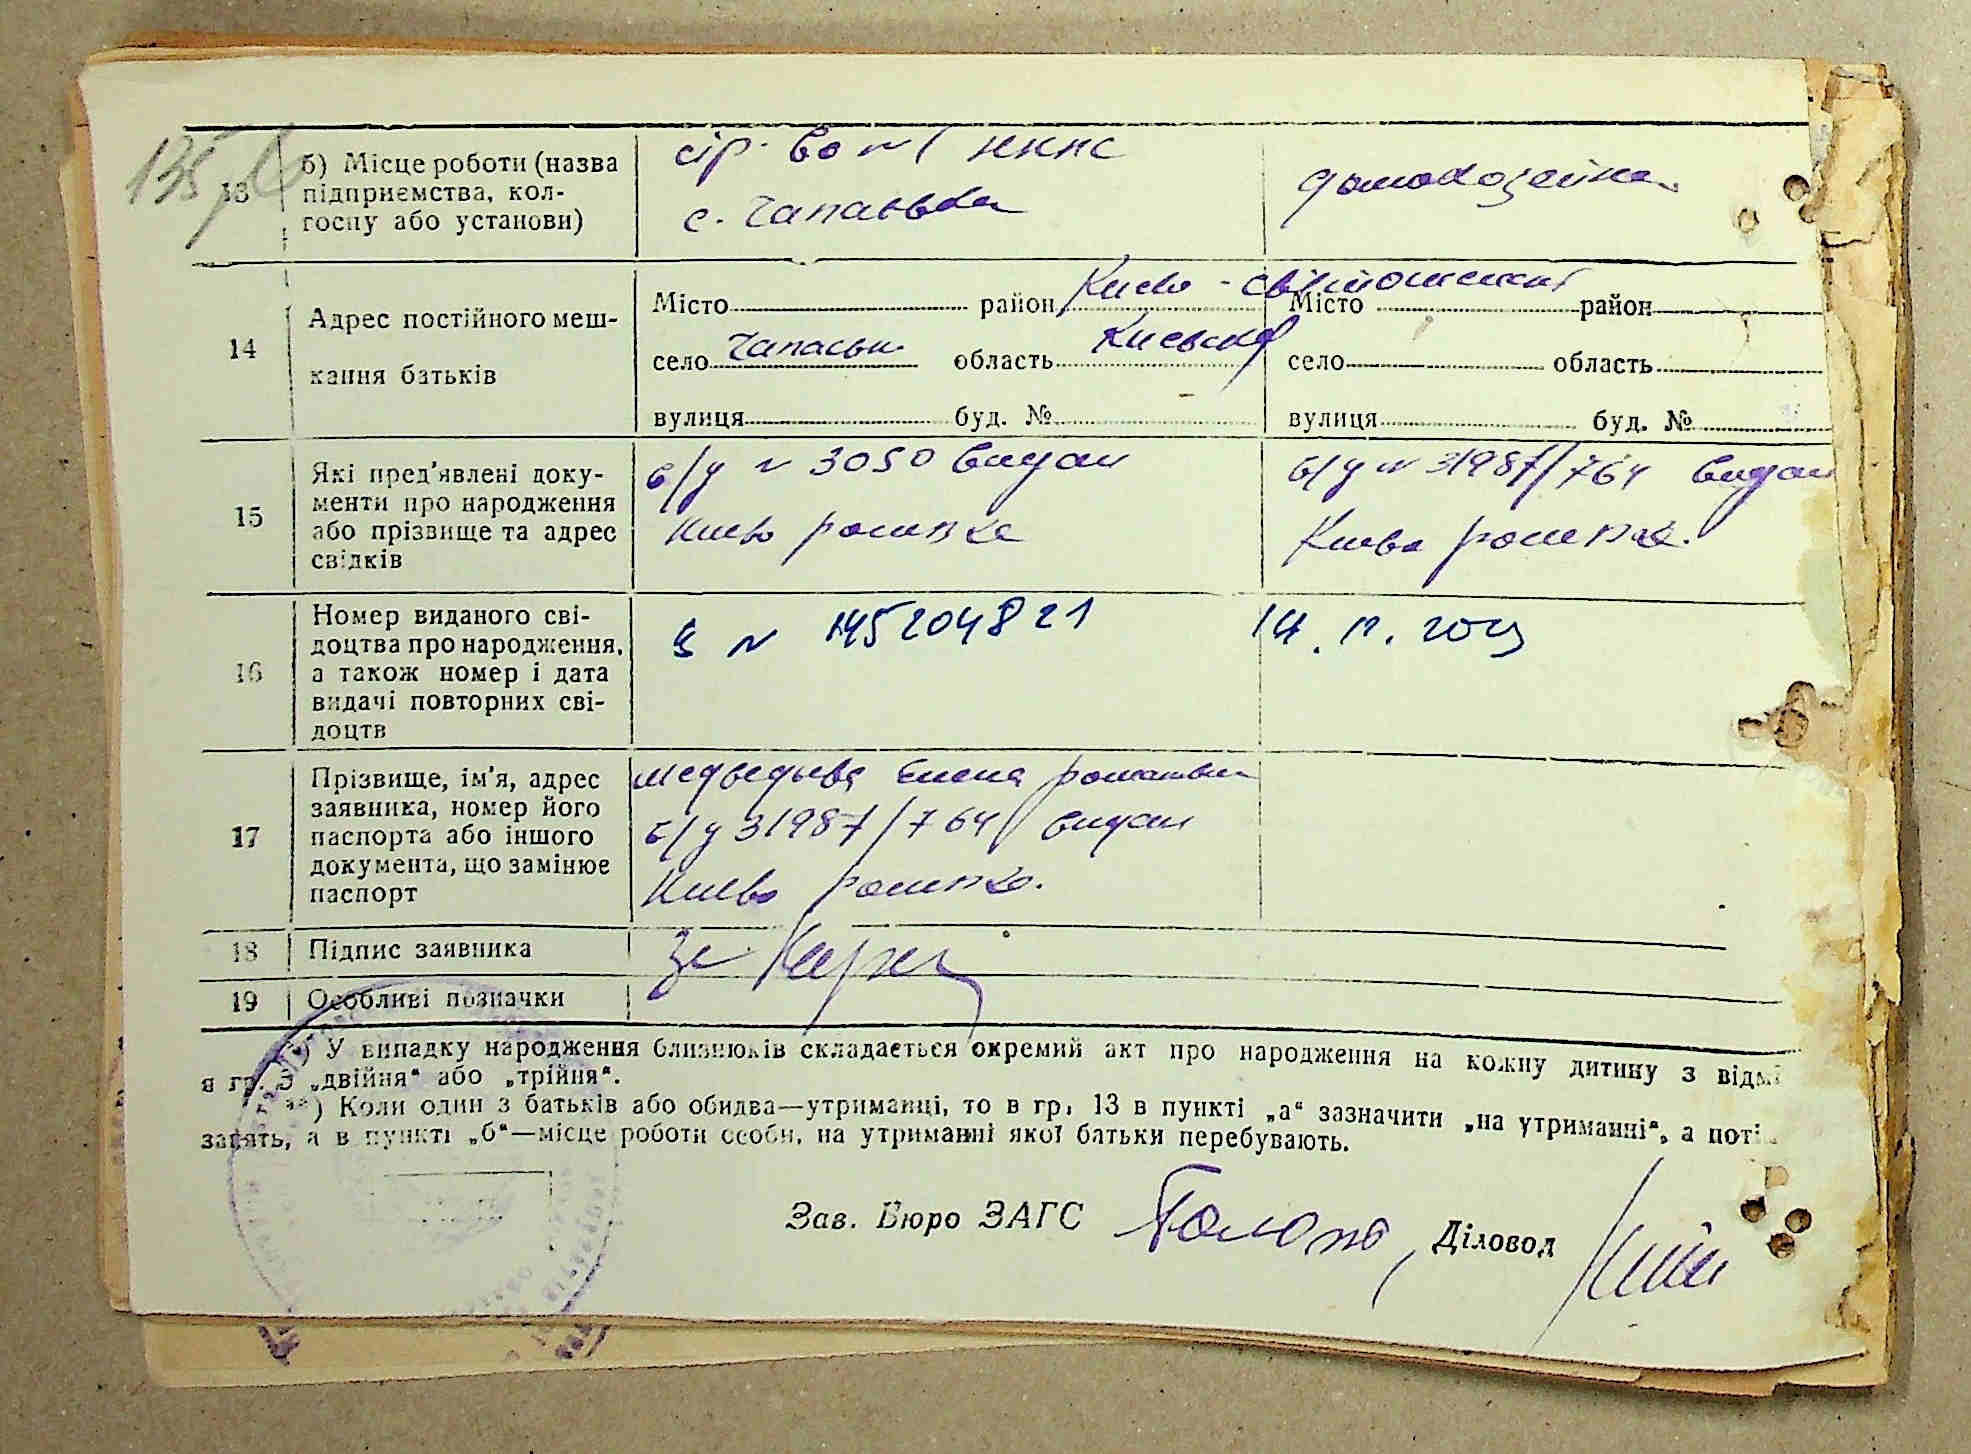 135
13 б) Місце роботи (назва підприємства, колгоспу або установи)
№ 1 НКПС
с. Чапаєвка
домохозяйка
14 Адрес постійного мешкання батьків
Місто район Києво-Святошинський
село Чапаєвка область Київська
вулиця буд. №
Місто район
село область
вулиця буд. №
15 Які пред'явлені документи про народження або прізвище та адрес свідків
б/у № 3050 видан
Києво
б/у № 31987/764 видан
Києво
16 Номер виданого свідоцтва про народження, а також номер і дата видачі повторних свідоцтв
№ 145204821
14.
17 Прізвище, ім'я, адрес заявника, номер його паспорта або іншого документа, що замінює паспорт
Медведева Елена
б/у 31987/764 видан
Києво
18 Підпис заявника
За
19 Особливі позначки
*) У випадку народження близнюків складається окремий акт про народження на кожну дитину з
в гр. 3 „двійня“ або „трійня“.
**) Коли один з батьків або обидва—утриманці, то в гр. 13 в пункті „а“ зазначити „на утриманні“, а
занять, а в пункті „б“—місце роботи особи, на утриманні якої батьки перебувають.
Зав. Бюро ЗАГС Діловод